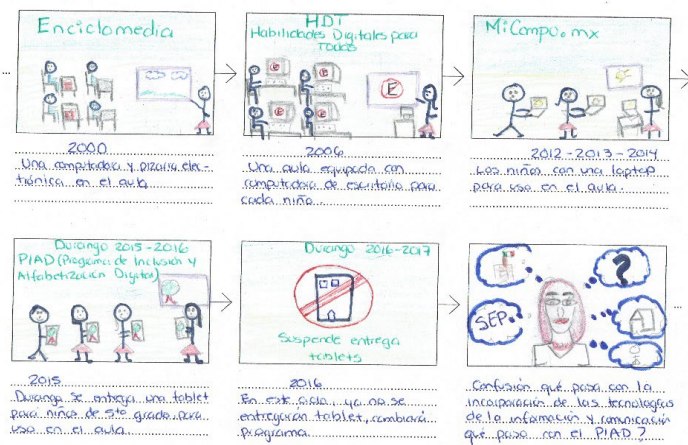 Enciclomedia
2000
Una computadora y pizarra elec-
trónica en el aula
HDT
Habilidades Digitales para
Todos
E
E
E
E
E
2006
Una aula equipada con
computadora de escritorio para
cada niño.
MiCompu.mx
2012-2013-2014
Los niños con una laptop
para uso en el aula.
Durango 2015-2016
PIAD (Programa de Inclusión y
Alfabetización Digital)
2015
Durango se entrega una tablet
para niños de 5to grado para
uso en el aula.
Durango 2016-2017
Suspende entrega
tablets
2016
En este ciclo, ya no se
entregarán tablet, cambiará
programa.
SEP.
?
Confusión qué pasa con la
incorporación de las tecnologías
de la información y comunicación
qué paso con el PIAD?